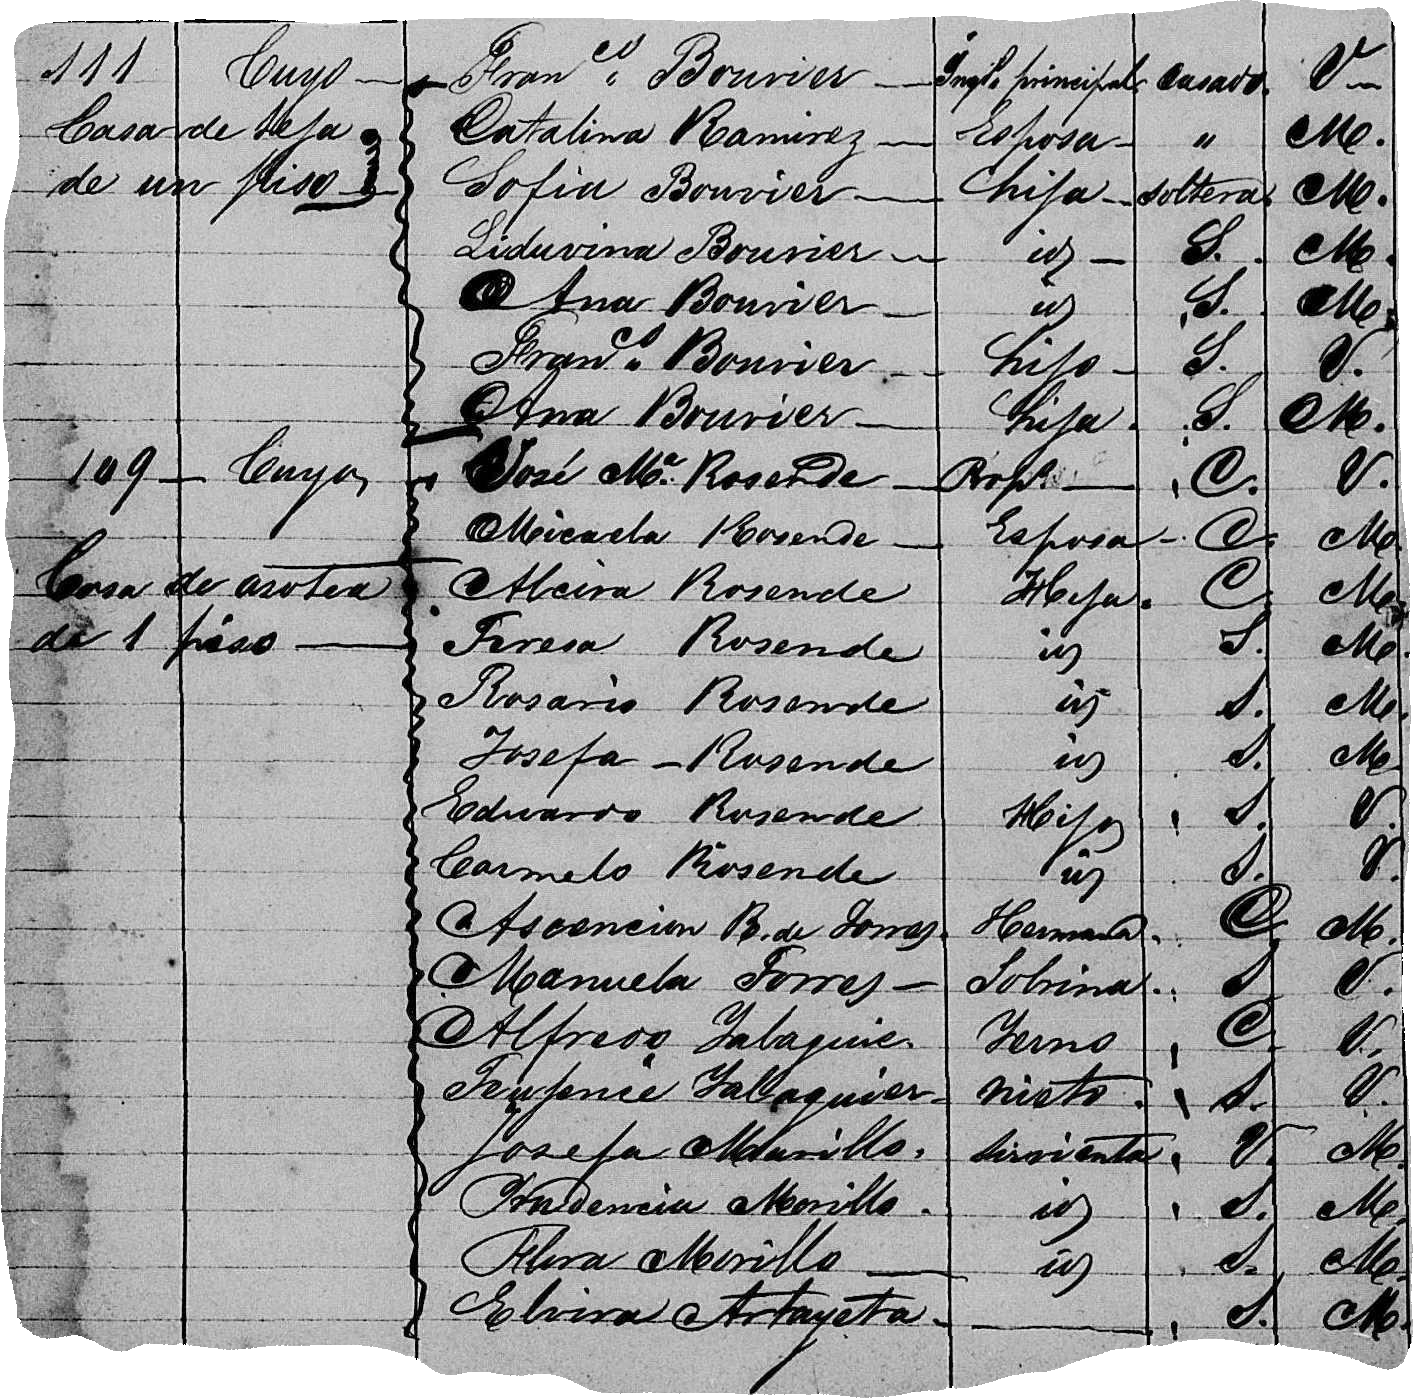 111 Cuyo — Fran.co Bouvier — Inql.o principal casado. V —
Casa de teja Catalina Ramirez — Esposa — " M.
de un piso — Sofia Bouvier — hija — soltera. M.
Liduvina Bouvier — id — S. M.
Ana Bouvier — id S. M.
Fran.co Bouvier — hijo — S. V.
Ana Bouvier — hija. S. M.
109 — Cuyo, José Ma. Rosende — Prop. — C. V.
Micaela Rosende — Esposa — C. M.
Casa de asotea Alcira Rosende Hija. C. M.
de 1 piso — Teresa Rosende id S. M.
Rosario Rosende id S. M.
Josefa — Rosende id S. M
Eduardo Rosende Hijo S. V.
Carmelo Rosende id S. V.
Ascencion R. de Torres. Hermana. C. M.
Manuela Torres — Sobrina. S V.
Alfredo Jalaguie. Yerno C V.
Jalaguier — nieto. S. V.
Josefa Murillo. Sirvienta. V. M.
Prudencia Morillo. id S. M.
Flora Morillo — id S. M.
Elvira Artayeta. — S. M.